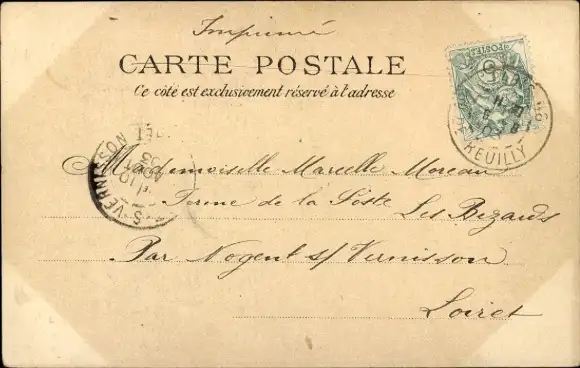 Imprimé
CARTE POSTALE
Ce côté est exclusivement réservé à l'adresse
POSTES
REUILLY
S-VERNISSON
10
AOUT
03
Mademoiselle Marcelle Moreau
Ferme de la Poste Les Bézards
Par Nogent s/ Vernisson
Loiret